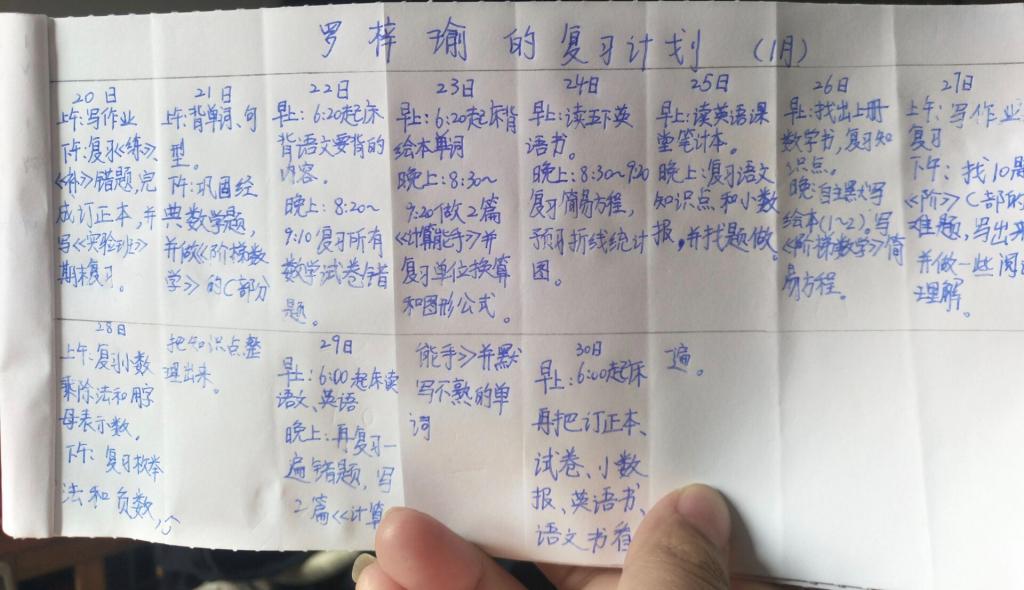 罗梓瑜的复习计划(1月)
20日
上午:写作业
下午:复习《练》、
《补》错题,完
成订正本,并
写《实验班》
期末复习。
21日
上午:背单词、句
型。
下午:巩固经
典数学题,
并做《阶梯数
学》的C部分
22日
早上:6:20起床
背语文要背的
内容。
晚上:8:20~
9:10复习所有
数学试卷错
题。
23日
早上:6:20起床背
绘本单词
晚上:8:30~
9:20做2篇
《计算能手》并
复习单位换算
和图形公式。
24日
早上:读五下英
语书。
晚上:8:30~9:20
复习简易方程,
预习折线统计
图。
25日
早上:读英语课
堂笔计本。
晚上:复习语文
知识点和小数
报,并找题做。
26日
早上:找出上册
数学书,复习知
识点。
晚:自主默写
绘本(1~2).写
《阶梯数学》简
易方程。
27日
上午:写作业
复习
下午:找10题
《阶》C部的
难题,写出来
并做一些阅读
理解。
28日
上午:复习小数
乘除法和用字
母表示数,
下午:复习枚举
法和负数,
把知识点整
理出来。
29日
早上:6:00起床读
语文、英语
晚上:再复习一
遍错题,写
2篇《计算
能手》并默
写不熟的单
词
30日
早上:6:00起床
再把订正本、
试卷、小数
报、英语书、
语文书看
遍。